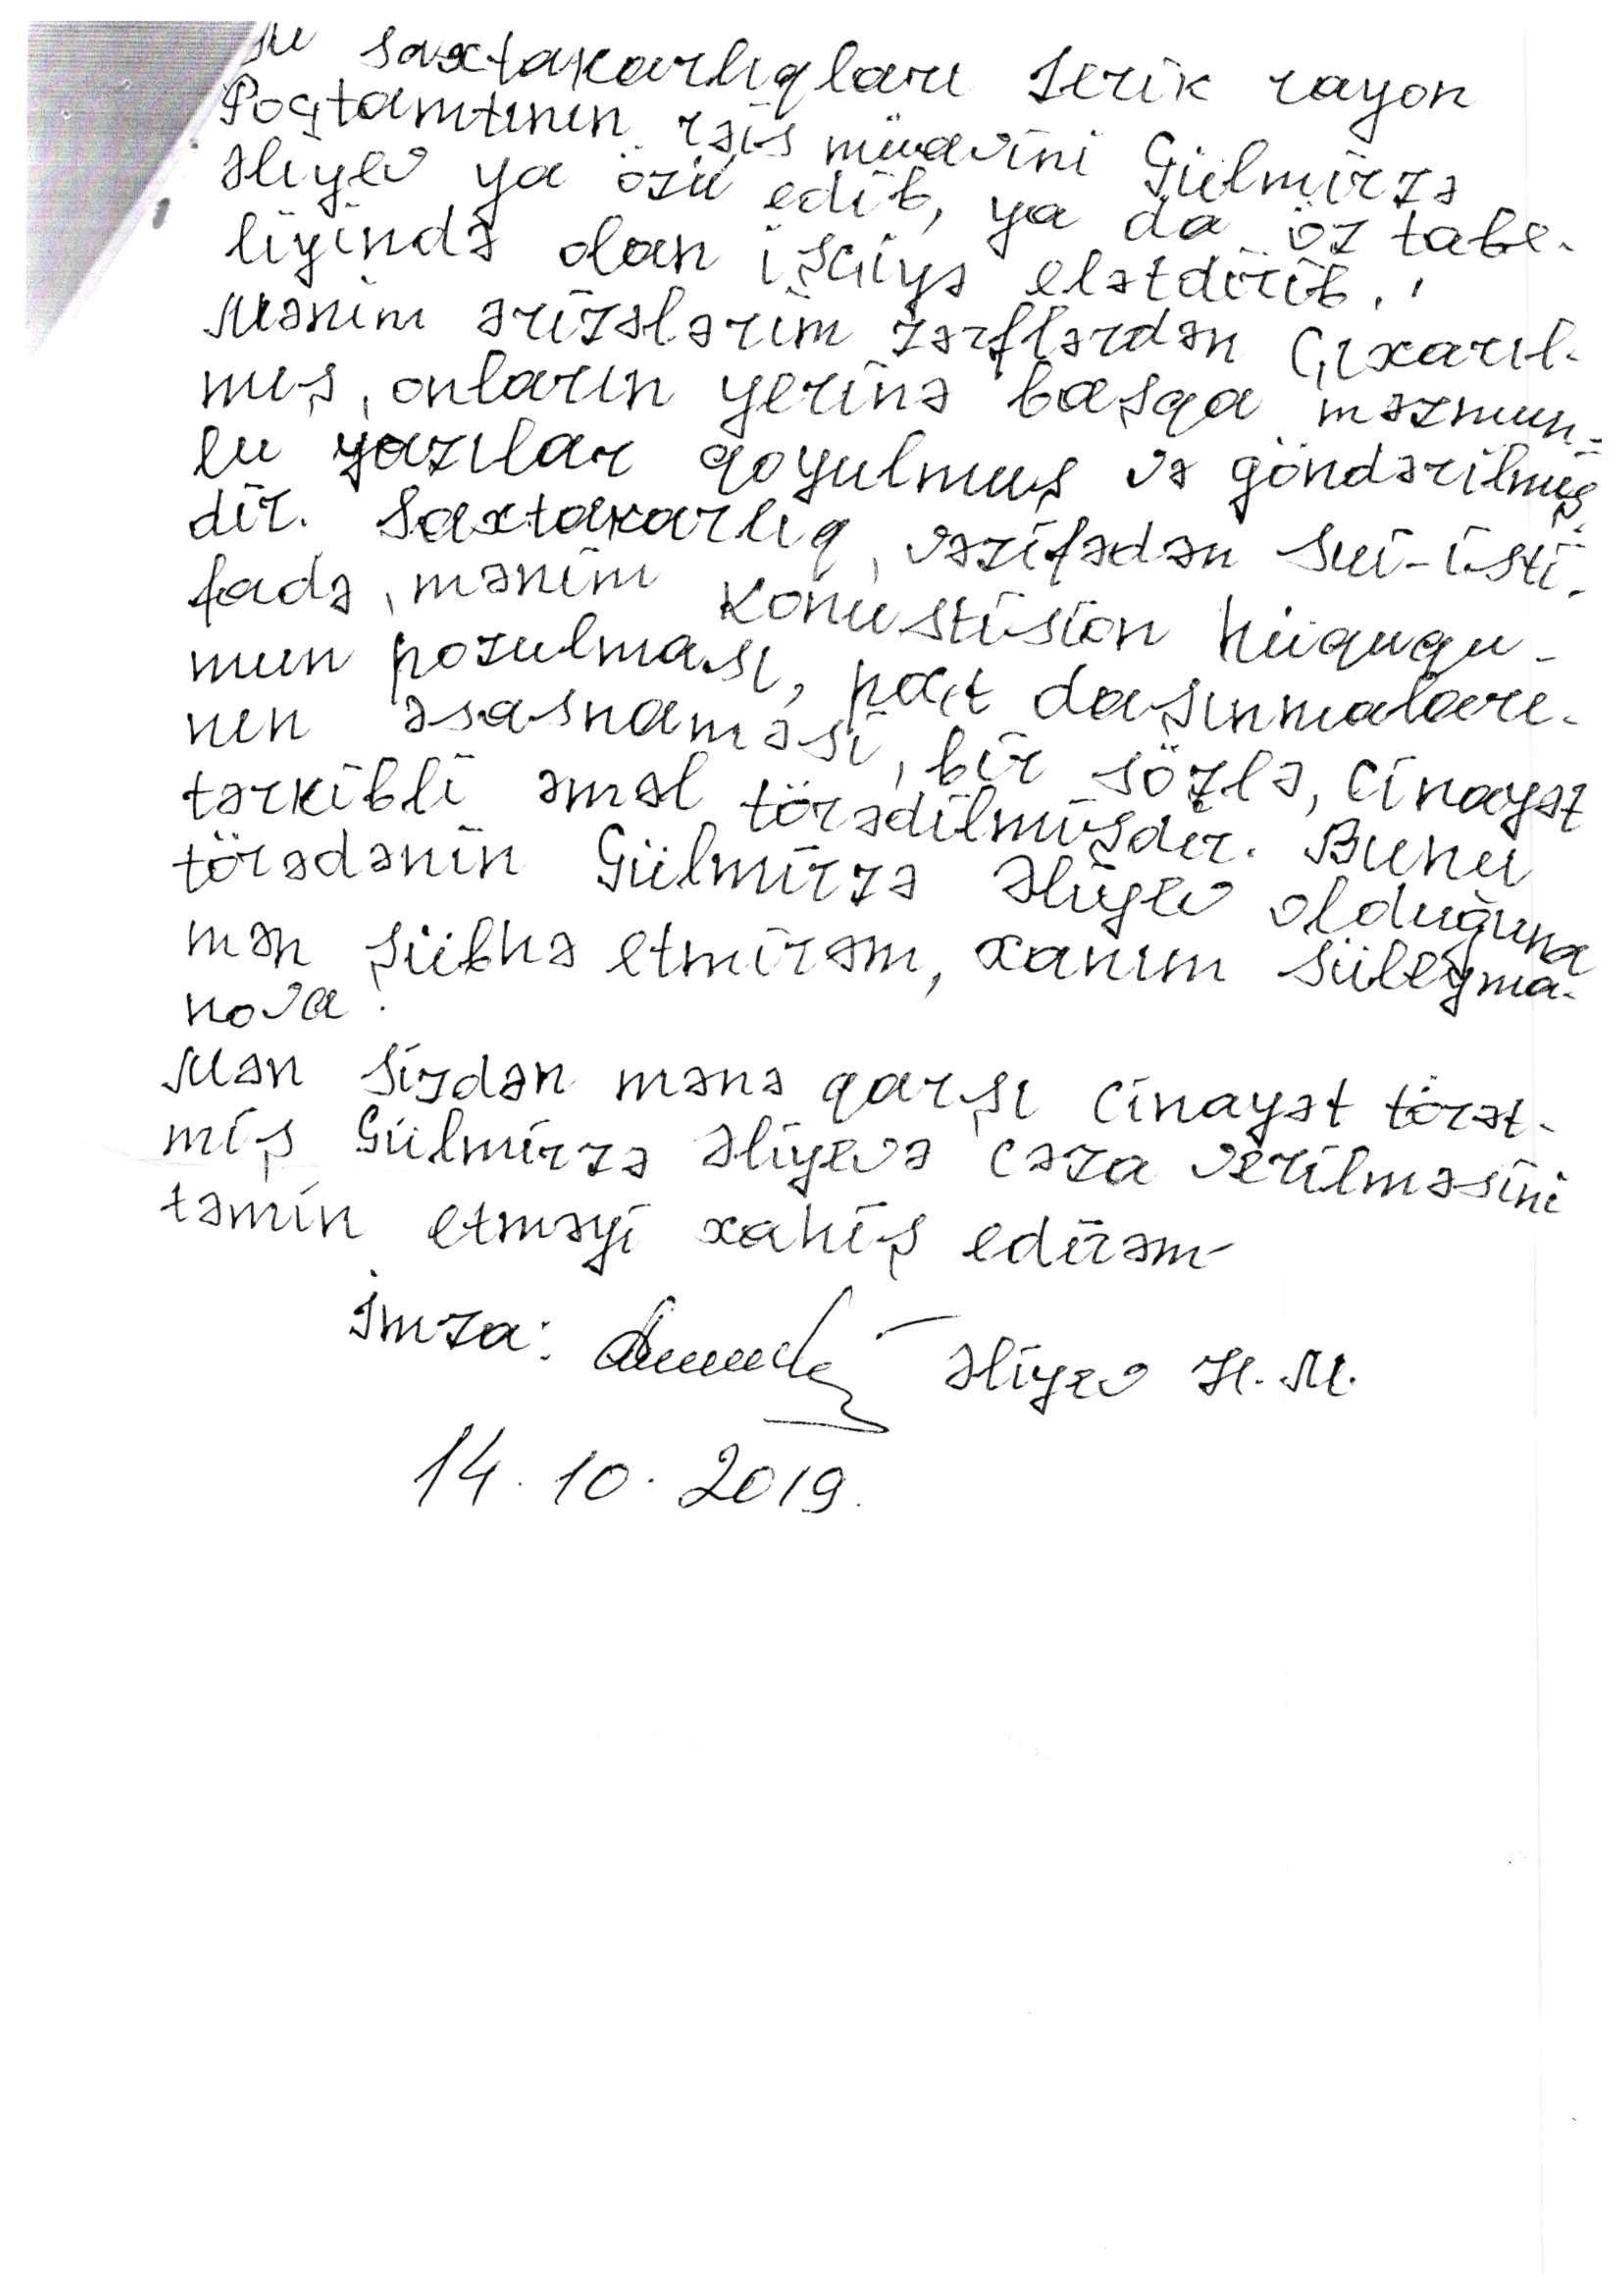 saxtakarlıqları Lerik rayon
Poçtamtının rəis müavini Gülmirzə
Əliyev ya özü edib, ya da öz tabe-
liyində olan işçiyə elətdirib.!
Mənim ərizələrim zərflərdən çıxarıl-
mış, onların yerinə başqa məzmun-
lu yazılar qoyulmuş və göndərilmiş-
dir. Saxtakarlıq, vəzifədən sui-isti-
fadə, mənim konustision hüququ-
mun pozulması, poçt daşınmaları-
nın əsasnaməsi, bir sözlə, cinayət
tərkibli əməl törədilmişdir. Bunu
törədənin Gülmirzə Əliyev olduğuna
mən şübhə etmirəm, xanım Süleyma-
nova!
Mən Sizdən mənə qarşı cinayət törət-
miş Gülmirzə Əliyevə cəza verilməsini
təmin etməyi xahiş edirəm
İmza: Əliyev H. M.
14.10.2019.